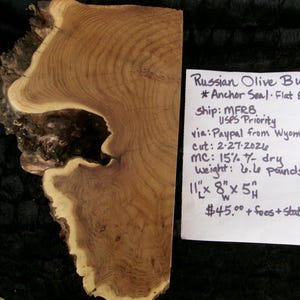 Russian Olive Bu
* Anchor Seal · Flat
Ship: MFRB
USPS Priority
via: Paypal from Wyom
cut: 2-27-2026
MC: 15% +/- dry
weight: 6.6 pounds
11"L x 8"W x 5"H
$45.00 + fees + stat